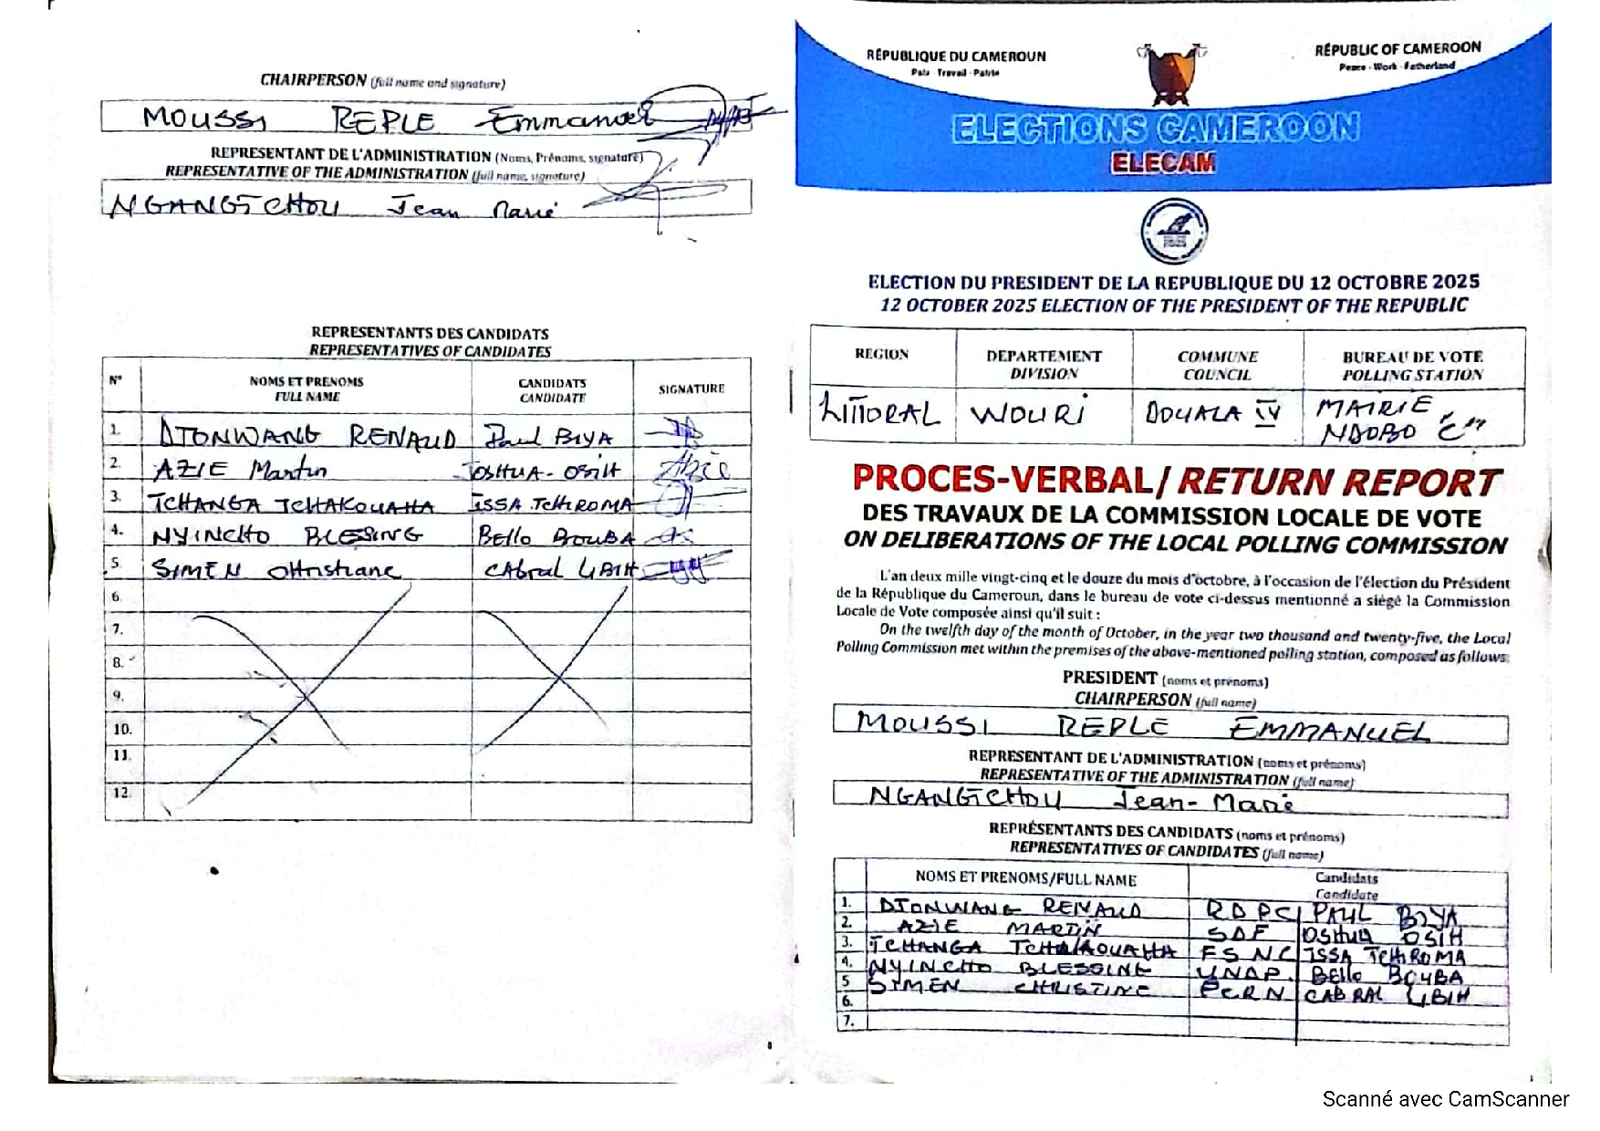 CHAIRPERSON (full name and signature)
MOUSSI REPLE Emmanuel
REPRESENTANT DE L'ADMINISTRATION (Noms, Prénoms, signature)
REPRESENTATIVE OF THE ADMINISTRATION (full name, signature)
NGANGTCHOU Jean Marie
REPRESENTANTS DES CANDIDATS
REPRESENTATIVES OF CANDIDATES
N° NOMS ET PRENOMS FULL NAME CANDIDATS CANDIDATE SIGNATURE
1. DJONWANG RENAUD Paul BIYA
2. AZIE Martin JOSHUA-OSIH
3. TCHANGA TCHAKOUAHA ISSA TCHIROMA
4. NYINCHO BLESSING Bello BOUBA
5. SIMEN CABRAL LIBIH
6.
7.
8.
9.
10.
11.
12.
RÉPUBLIQUE DU CAMEROUN
Paix - Travail - Patrie
RÉPUBLIC OF CAMEROON
Peace - Work - Fatherland
ELECTIONS CAMEROON
ELECAM
ELECTION DU PRESIDENT DE LA REPUBLIQUE DU 12 OCTOBRE 2025
12 OCTOBER 2025 ELECTION OF THE PRESIDENT OF THE REPUBLIC
REGION DEPARTEMENT DIVISION COMMUNE COUNCIL BUREAU DE VOTE POLLING STATION
LITTORAL WOURI DOUALA IV MAIRIE NDOBO "C"
PROCES-VERBAL/ RETURN REPORT
DES TRAVAUX DE LA COMMISSION LOCALE DE VOTE
ON DELIBERATIONS OF THE LOCAL POLLING COMMISSION
L'an deux mille vingt-cinq et le douze du mois d'octobre, à l'occasion de l'élection du Président
de la République du Cameroun, dans le bureau de vote ci-dessus mentionné a siégé la Commission
Locale de Vote composée ainsi qu'il suit :
On the twelfth day of the month of October, in the year two thousand and twenty-five, the Local
Polling Commission met within the premises of the above-mentioned polling station, composed as follows:
PRESIDENT (noms et prénoms)
CHAIRPERSON (full name)
MOUSSI REPLE EMMANUEL
REPRESENTANT DE L'ADMINISTRATION (noms et prénoms)
REPRESENTATIVE OF THE ADMINISTRATION (full name)
NGANGTCHOU Jean-Marie
REPRÉSENTANTS DES CANDIDATS (noms et prénoms)
REPRESENTATIVES OF CANDIDATES (full name)
NOMS ET PRENOMS/FULL NAME Candidats Candidate
1. DJONWANG RENAUD RDPC PAUL BIYA
2. AZIE MARTIN SDF OSIH
3. TCHANGA TCHAKOUAHA FSNC ISSA TCHIROMA
4. NYINCHO BLESSING UNDP BELLO BOUBA
5 SIMEN CHRISTINE PCRN CABRAL LIBIH
6.
7.
Scanné avec CamScanner